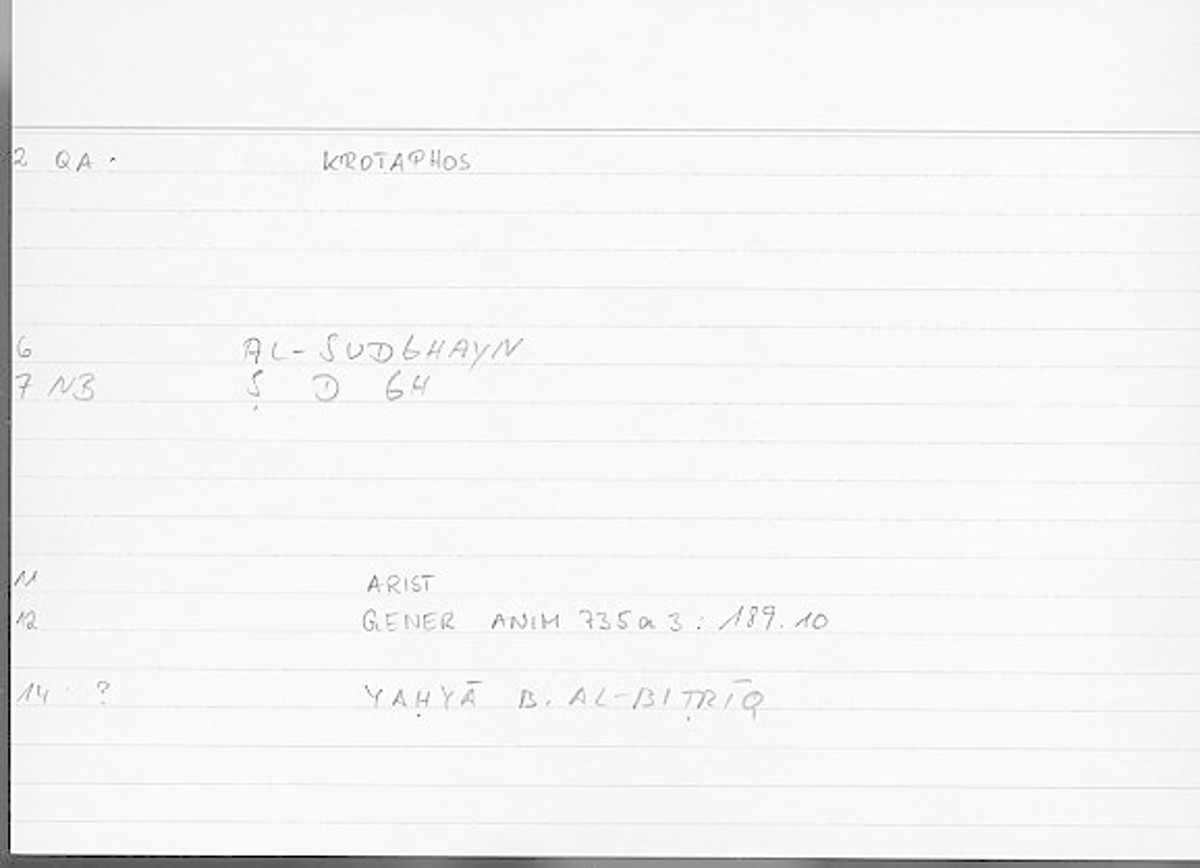 2 QA. KROTAPHOS
6 AL-SUDGHAYN
7 NB Ṣ D GH
11 ARIST
12 GENER ANIM 735a3: 189.10
14 ? YAḤYĀ B. AL-BIṬRĪQ